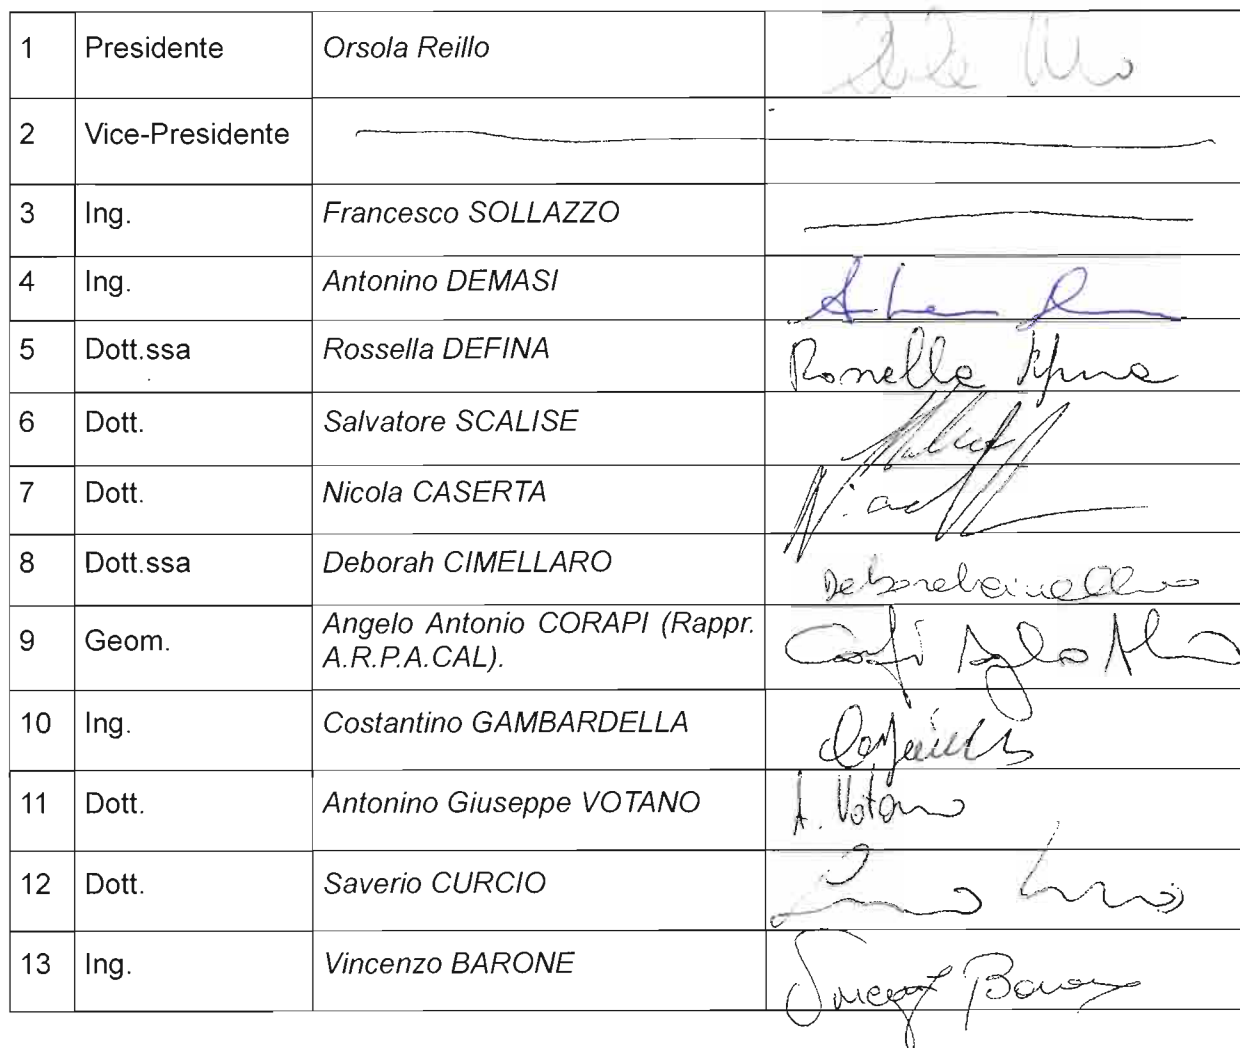 1 Presidente Orsola Reillo
2 Vice-Presidente
3 Ing. Francesco SOLLAZZO
4 Ing. Antonino DEMASI
5 Dott.ssa Rossella DEFINA Rossella
6 Dott. Salvatore SCALISE
7 Dott. Nicola CASERTA
8 Dott.ssa Deborah CIMELLARO
9 Geom. Angelo Antonio CORAPI (Rappr.
A.R.P.A.CAL).
10 Ing. Costantino GAMBARDELLA
11 Dott. Antonino Giuseppe VOTANO A. Votano
12 Dott. Saverio CURCIO
13 Ing. Vincenzo BARONE